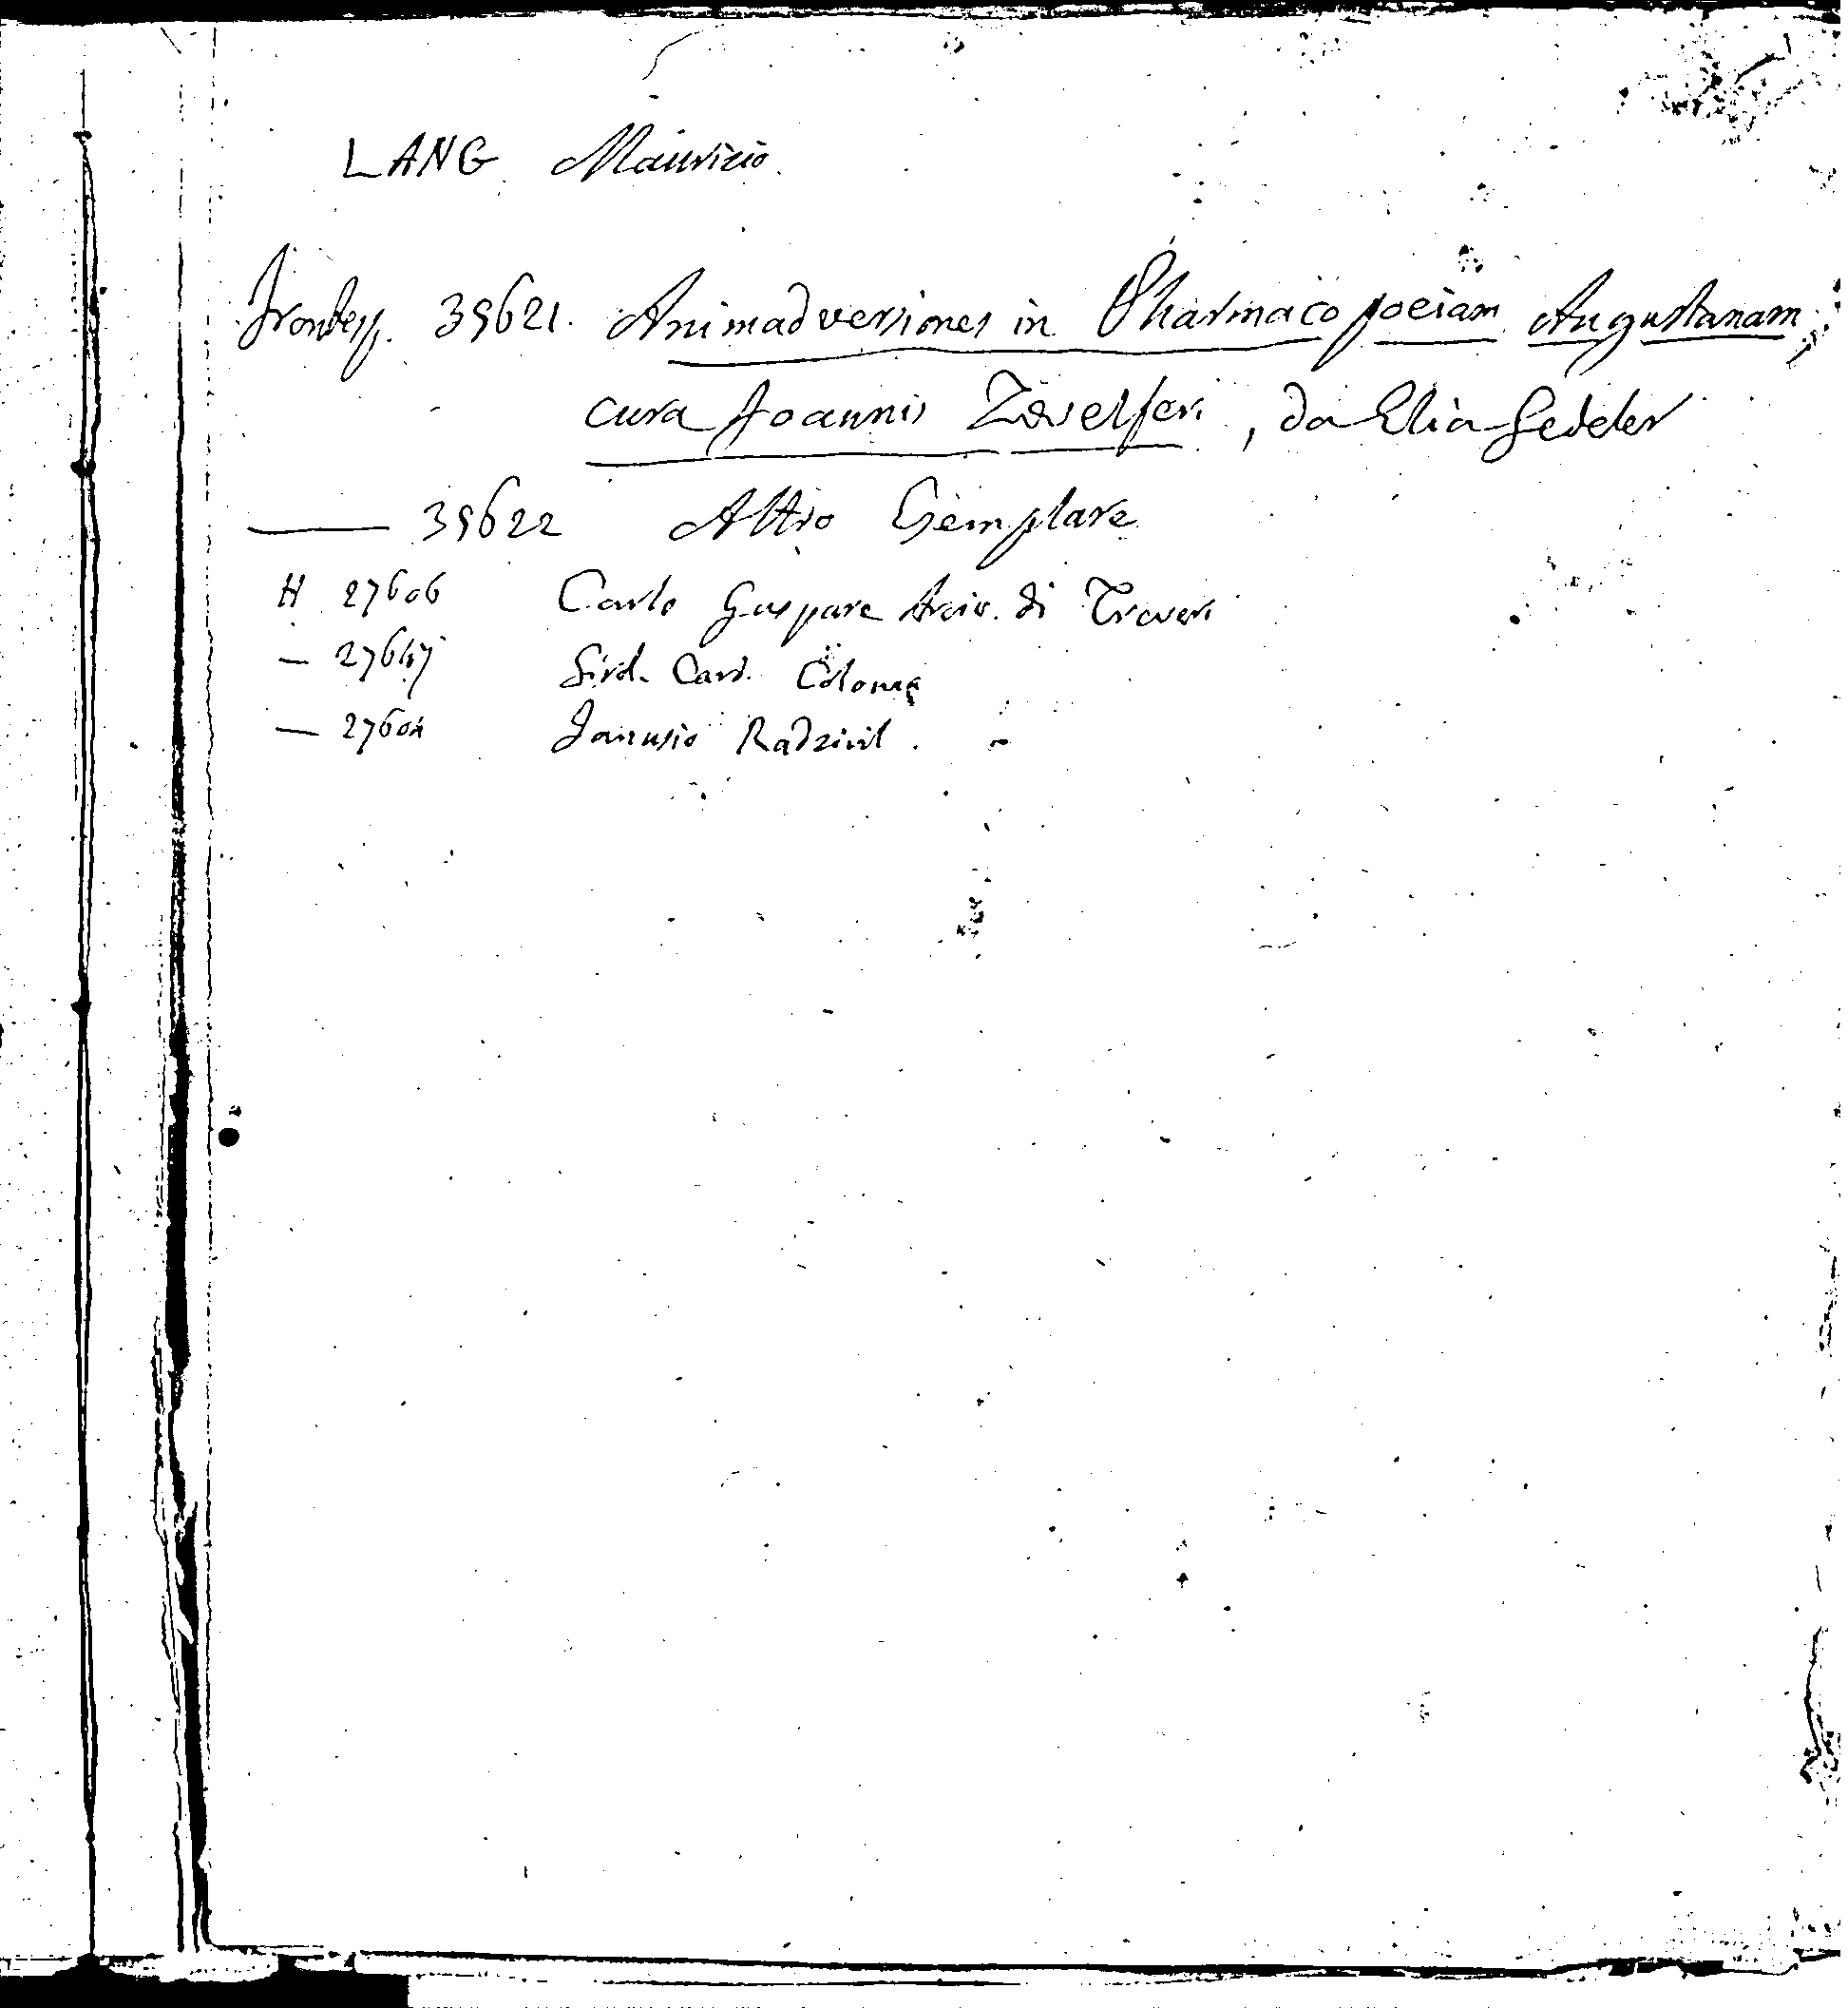 LANG Maurizio.
Frontesp. 39621. Animadversiones in Pharmacopoeiam Augustanam,
cura Joannis Zwelferi, da Elia Gedeler
—— 39622 Altro Esemplare
H 27606 Carlo Gaspare Arciv. di Treveri
— Card. Colonna
— 27604 Janusio Radzivil.